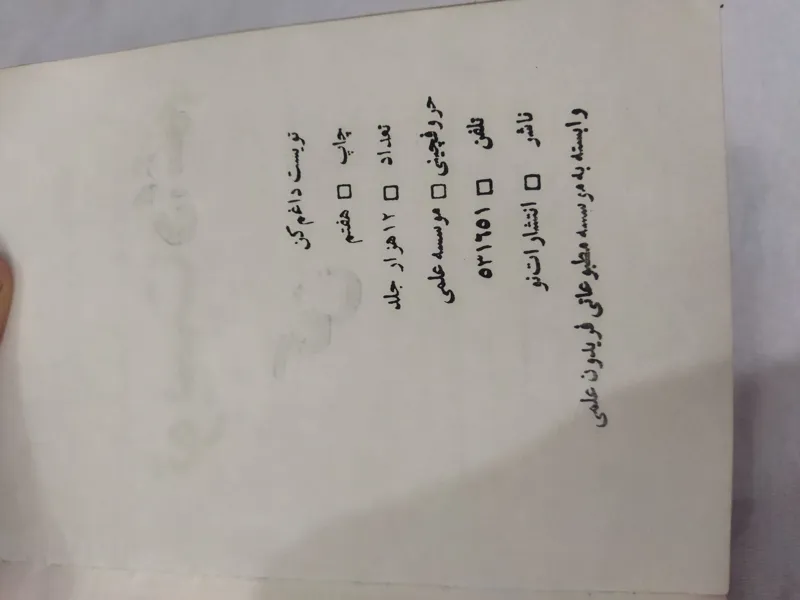 تویست داغم کن
چاپ □ هفتم
تعداد □ ۱۲ هزار جلد
حروفچینی □ موسسه علمی
تلفن □ ۵۳۱۶۵۱
ناشر □ انتشارات نو
وابسته به موسسه مطبوعاتی فریدون علمی